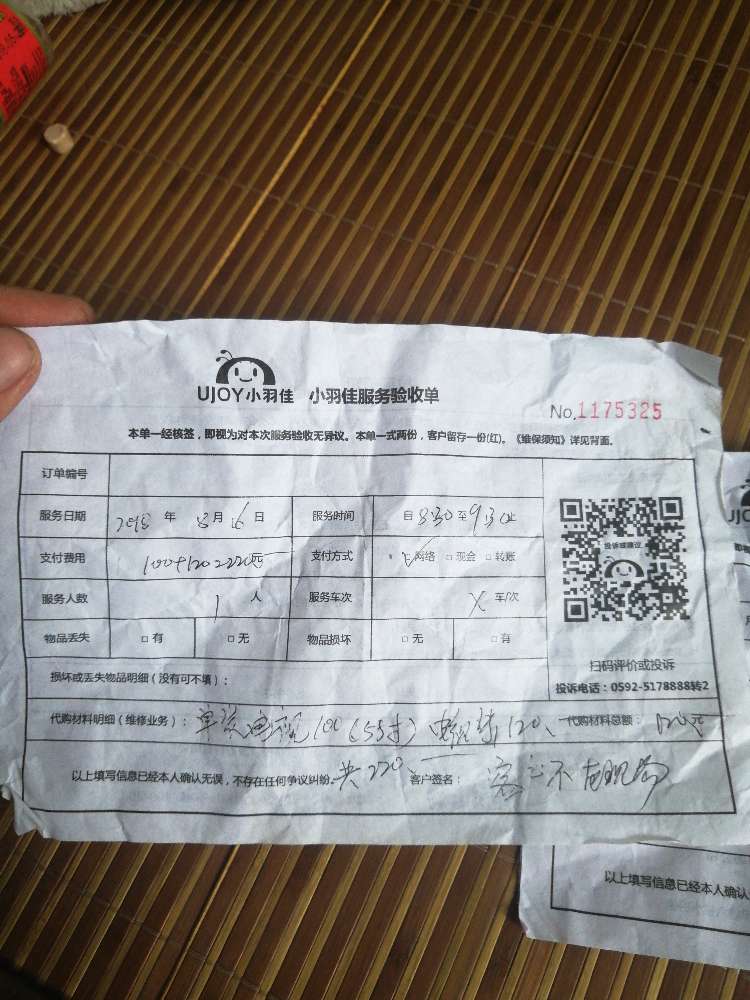 UJOY小羽佳 小羽佳服务验收单
No.1175325
本单一经核签，即视为对本次服务验收无异议。本单一式两份，客户留存一份(红)。《维保须知》详见背面。
订单编号
服务日期 2018 年 8 月 16 日 服务时间 自 8:30 至 9:30 止
支付费用 100+120=220元 支付方式 网络 □ 现金 □ 转账
服务人数 1 人 服务车次 X 车/次
物品丢失 □ 有 □ 无 物品损坏 □ 无 □ 有
投诉或建议
扫码评价或投诉
投诉电话：0592-5178888转2
损坏或丢失物品明细（没有可不填）：
代购材料明细（维修业务）： 单装电视100（55寸） 120、 代购材料总额： 120元
以上填写信息已经本人确认无误，不存在任何争议纠纷。 共220、 客户签名： 客户不在现场
以上填写信息已经本人确认